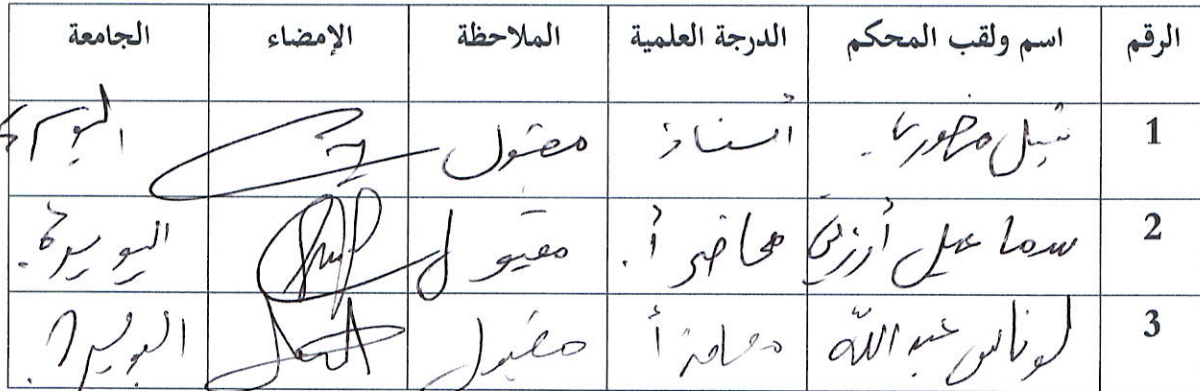 الرقم اسم ولقب المحكم الدرجة العلمية الملاحظة الإمضاء الجامعة
1 نبيل منصوري أستاذ مقبول البويرة
2 سماعيل أرزقي محاضر أ. مقبول البويرة.
3 لوناس عبد الله محاضر أ مقبول البويرة